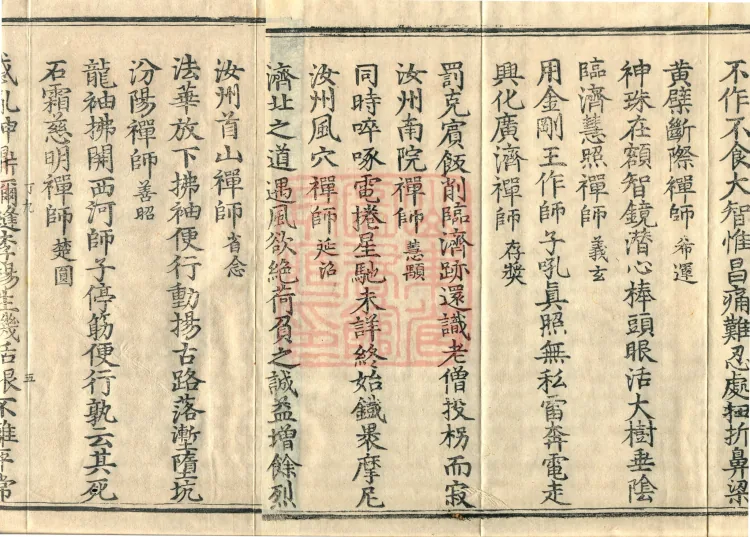 不作不食大智惟昌痛難忍處扭折鼻梁
黃檗斷際禪師希運
神珠在額智鏡潛心棒頭眼活大樹垂陰
臨濟慧照禪師義玄
用金剛王作師子吼眞照無私雷奔電走
興化廣濟禪師存奬
罰克賔飯削臨濟跡還識老僧投柺而寂
汝州南院禪師慧顒
同時啐啄電捲星馳未詳終始鐵最摩尼
汝州風穴禪師延沼
濟北之道遇風欲絶荷負之誠益增餘烈
汝州首山禪師省念
法華放下拂袖便行動揚古路落漸墮坑
汾陽禪師善昭
龍袖拂開西河師子停筋便行孰云其死
石霜慈明禪師楚圓
丁九
五
不離平常